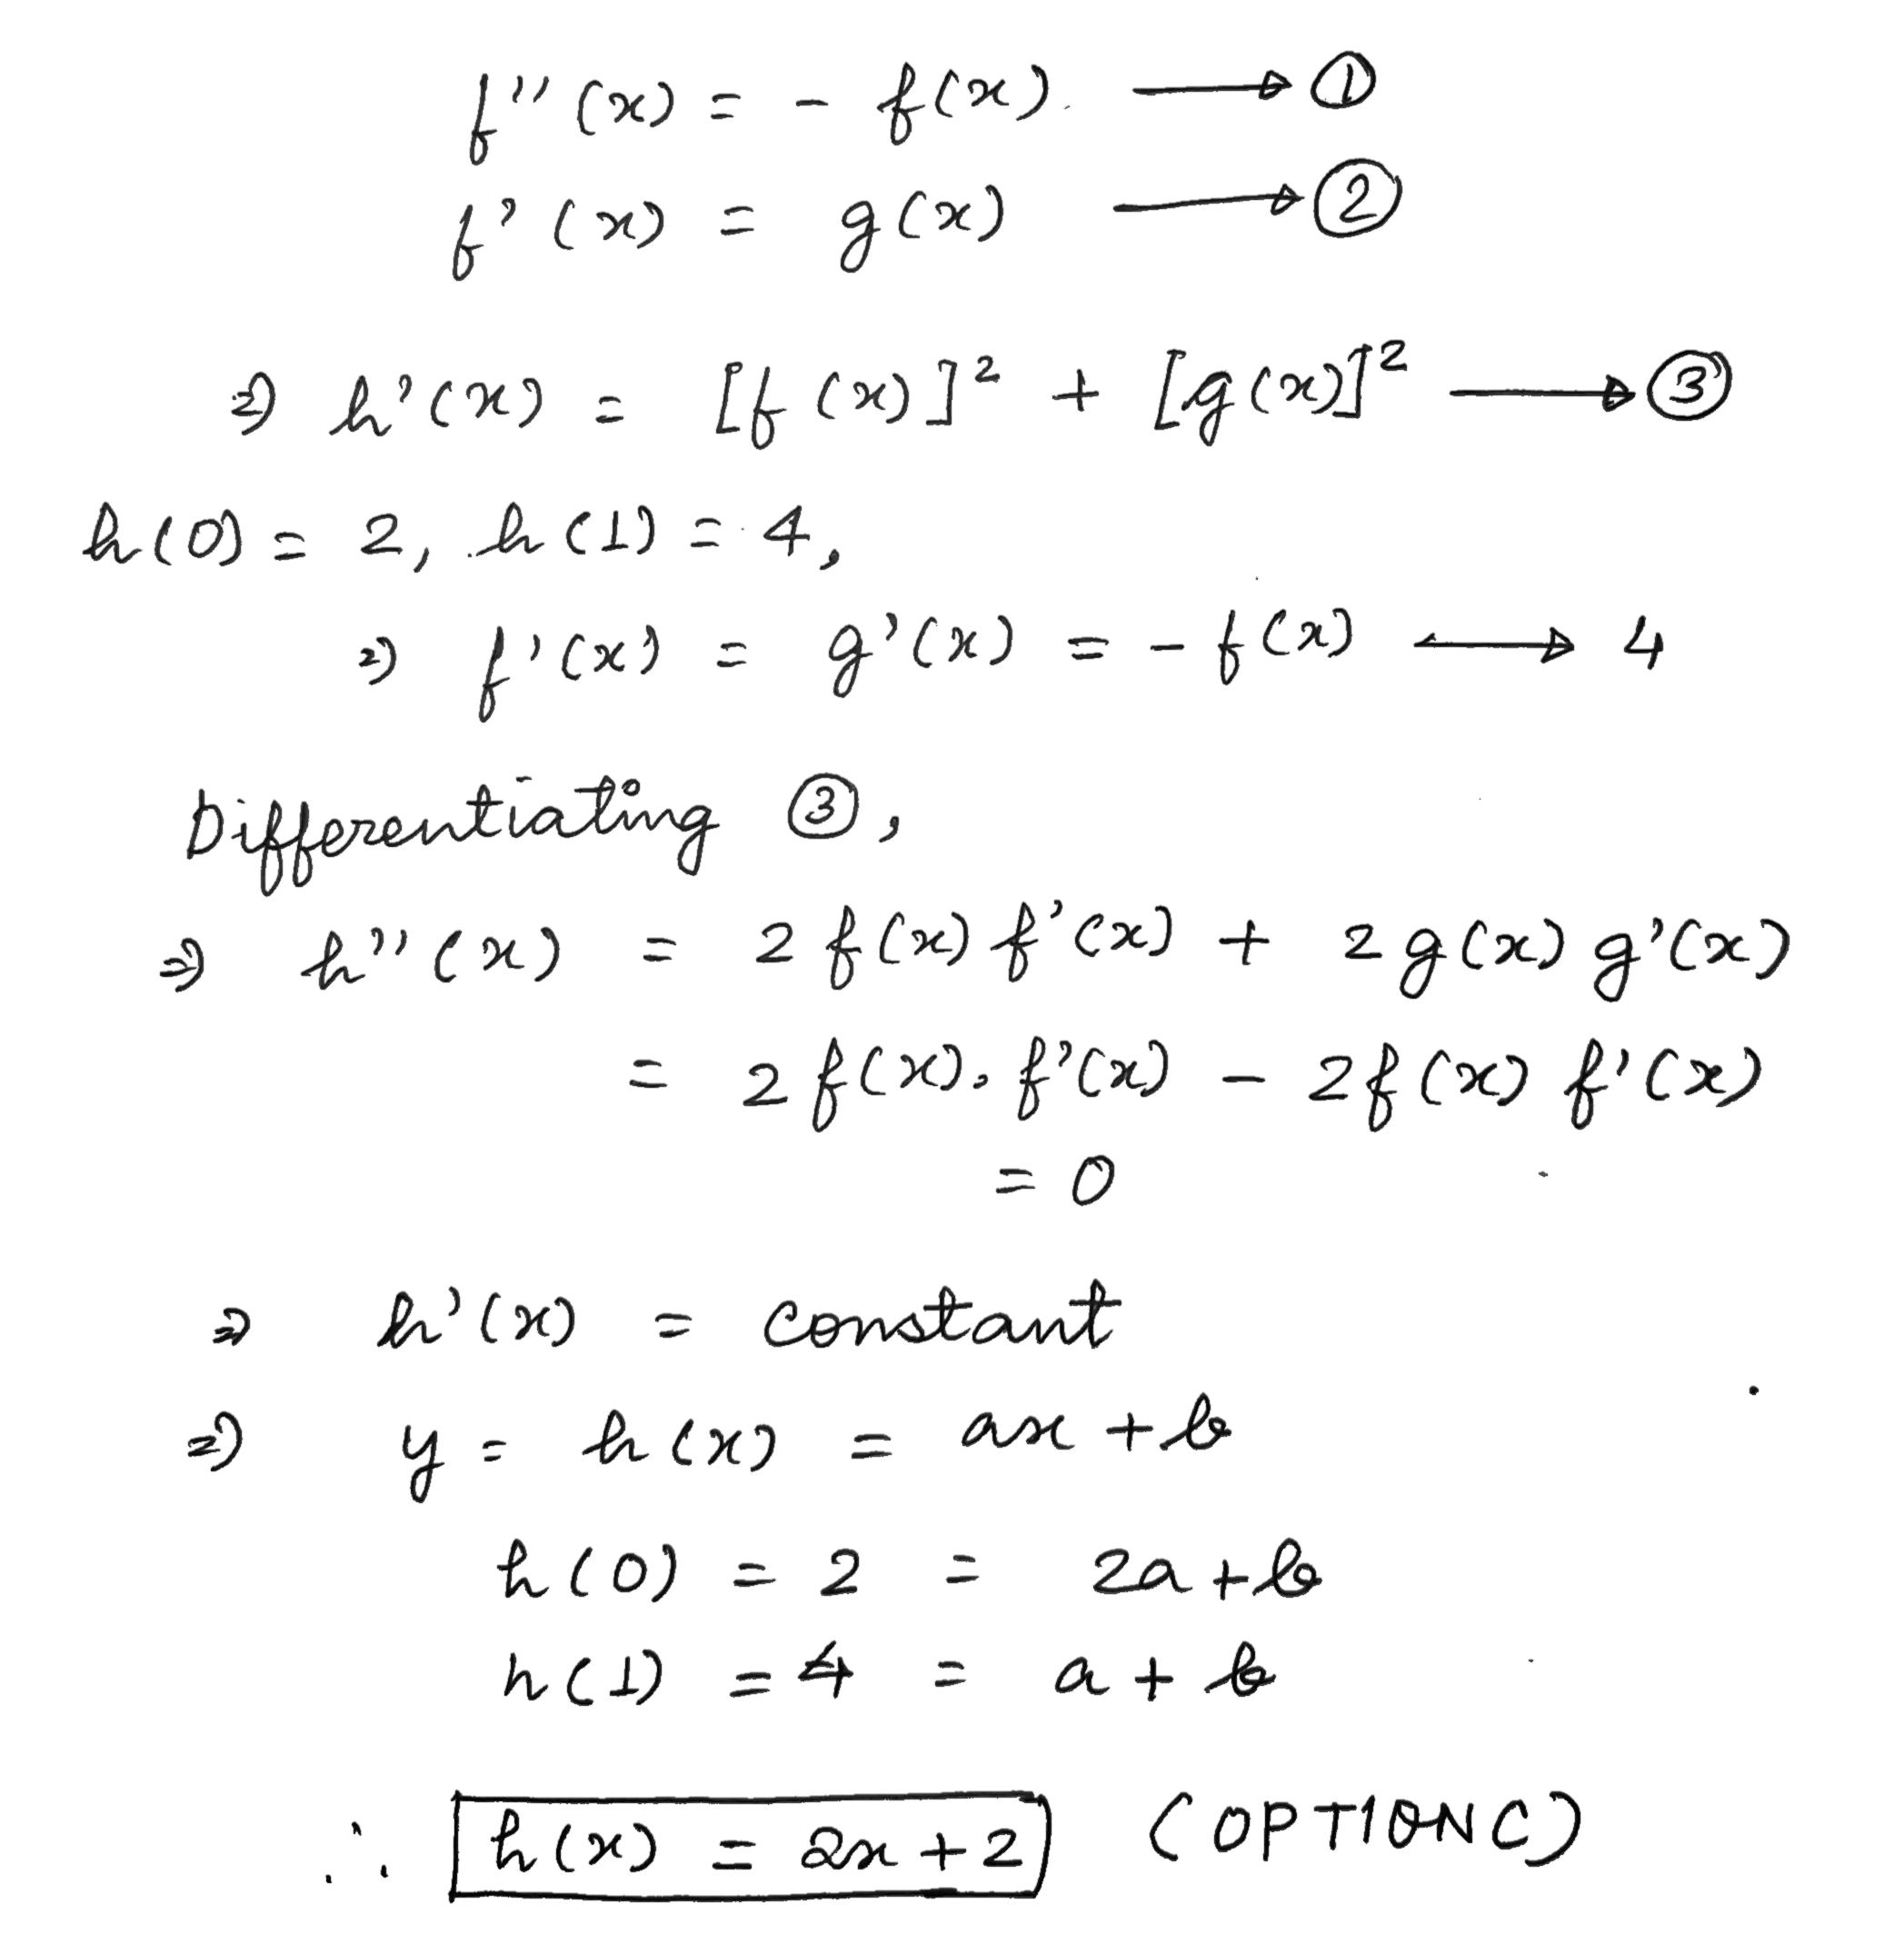 f''(x) = - f(x). → ①
f'(x) = g(x) → ②
⇒ h'(x) = [f(x)]² + [g(x)]² → ③
h(0) = 2, h(1) = 4,
⇒ f'(x) = g'(x) = - f(x) → 4
Differentiating ③,
⇒ h''(x) = 2 f(x) f'(x) + 2 g(x) g'(x)
= 2 f(x). f'(x) - 2f(x) f'(x)
= 0
⇒ h'(x) = constant
⇒ y = h(x) = ax + b
h(0) = 2 = 2a + b
h(1) = 4 = a + b
∴ h(x) = 2x + 2 (OPTION C)